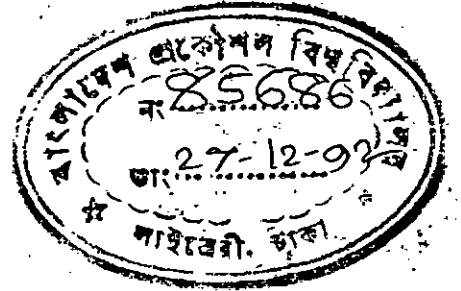 বাংলাদেশ প্রকৌশল বিশ্ববিদ্যালয়
নং 85686
তাং 27-12-93
লাইব্রেরী, ঢাকা